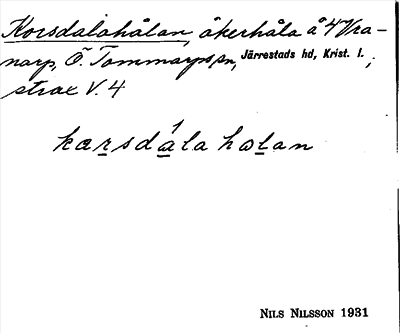 Korsdalahålan, åkerhåla å 4 Vra-
narp, Ö. Tommarps sn, Järrestads hd, Krist. l.;
strax V. 4
karsdála hωlan
NILS NILSSON 1931